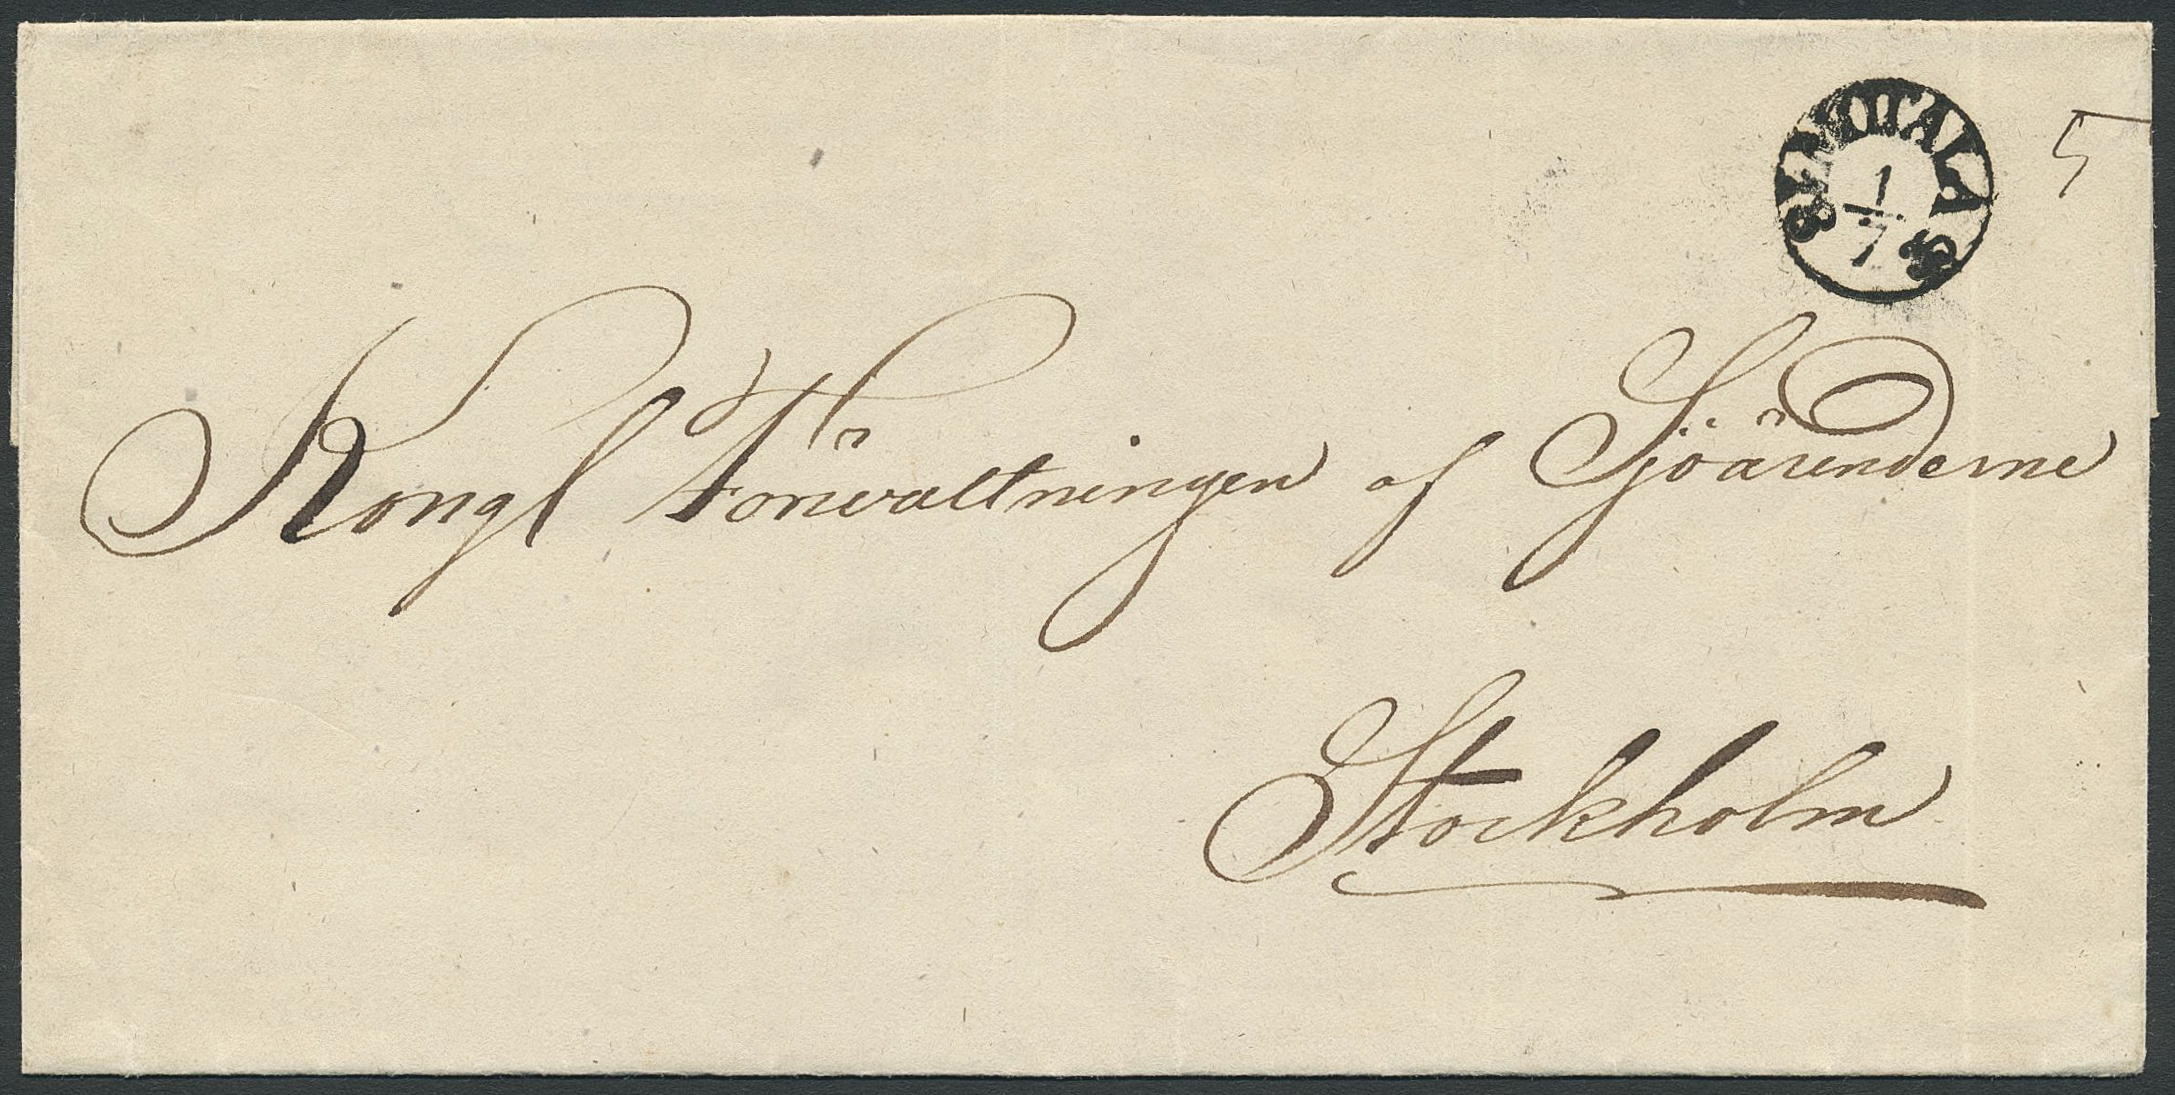 MOTALA
1
7
5
Kongl Förvaltningen af Sjöärenderne
Stockholm